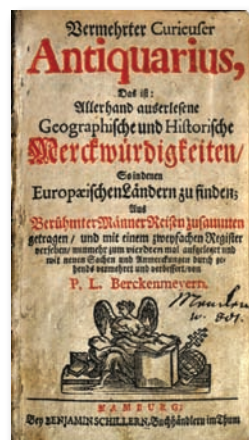 Vermehrter Curieuser
Antiquarius,
Das ist:
Allerhand auserlesene
Geographische und Historische
Merckwürdigkeiten/
So in denen
Europæischen Ländern zu finden;
Aus
Berühmter Männer Reisen zusammen
getragen / und mit einem zweyfachen Register
versehen/ nunmehr zum vierdten mal aufgeleget und
mit neuen Sachen und Anmerckungen durch ge-
hends vermehret und verbessert/ von
P. L. Berckenmeyern.
HAMBURG;
Bey BENJAMIN SCHILLERN, Buchhändlern im Thum